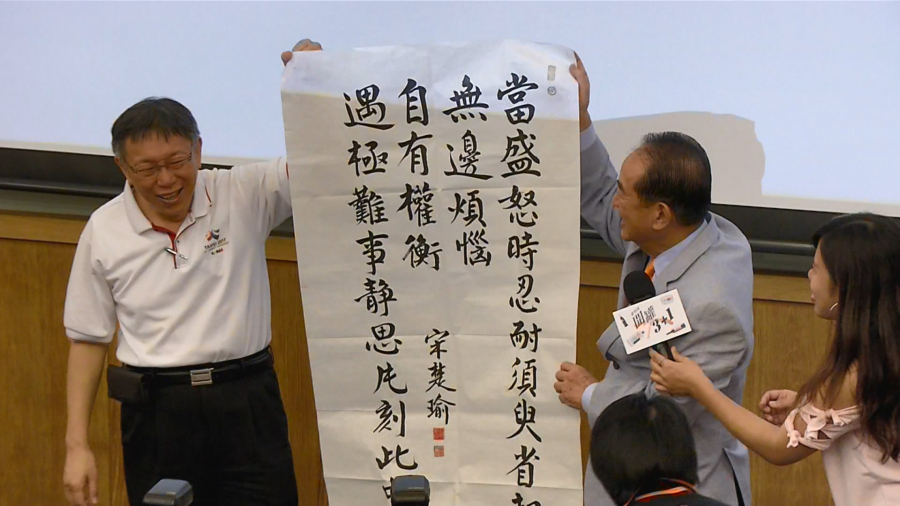 當盛怒時忍耐須臾省
無邊煩惱
遇極難事靜思片刻此
自有權衡
宋楚瑜
開罐
3+1